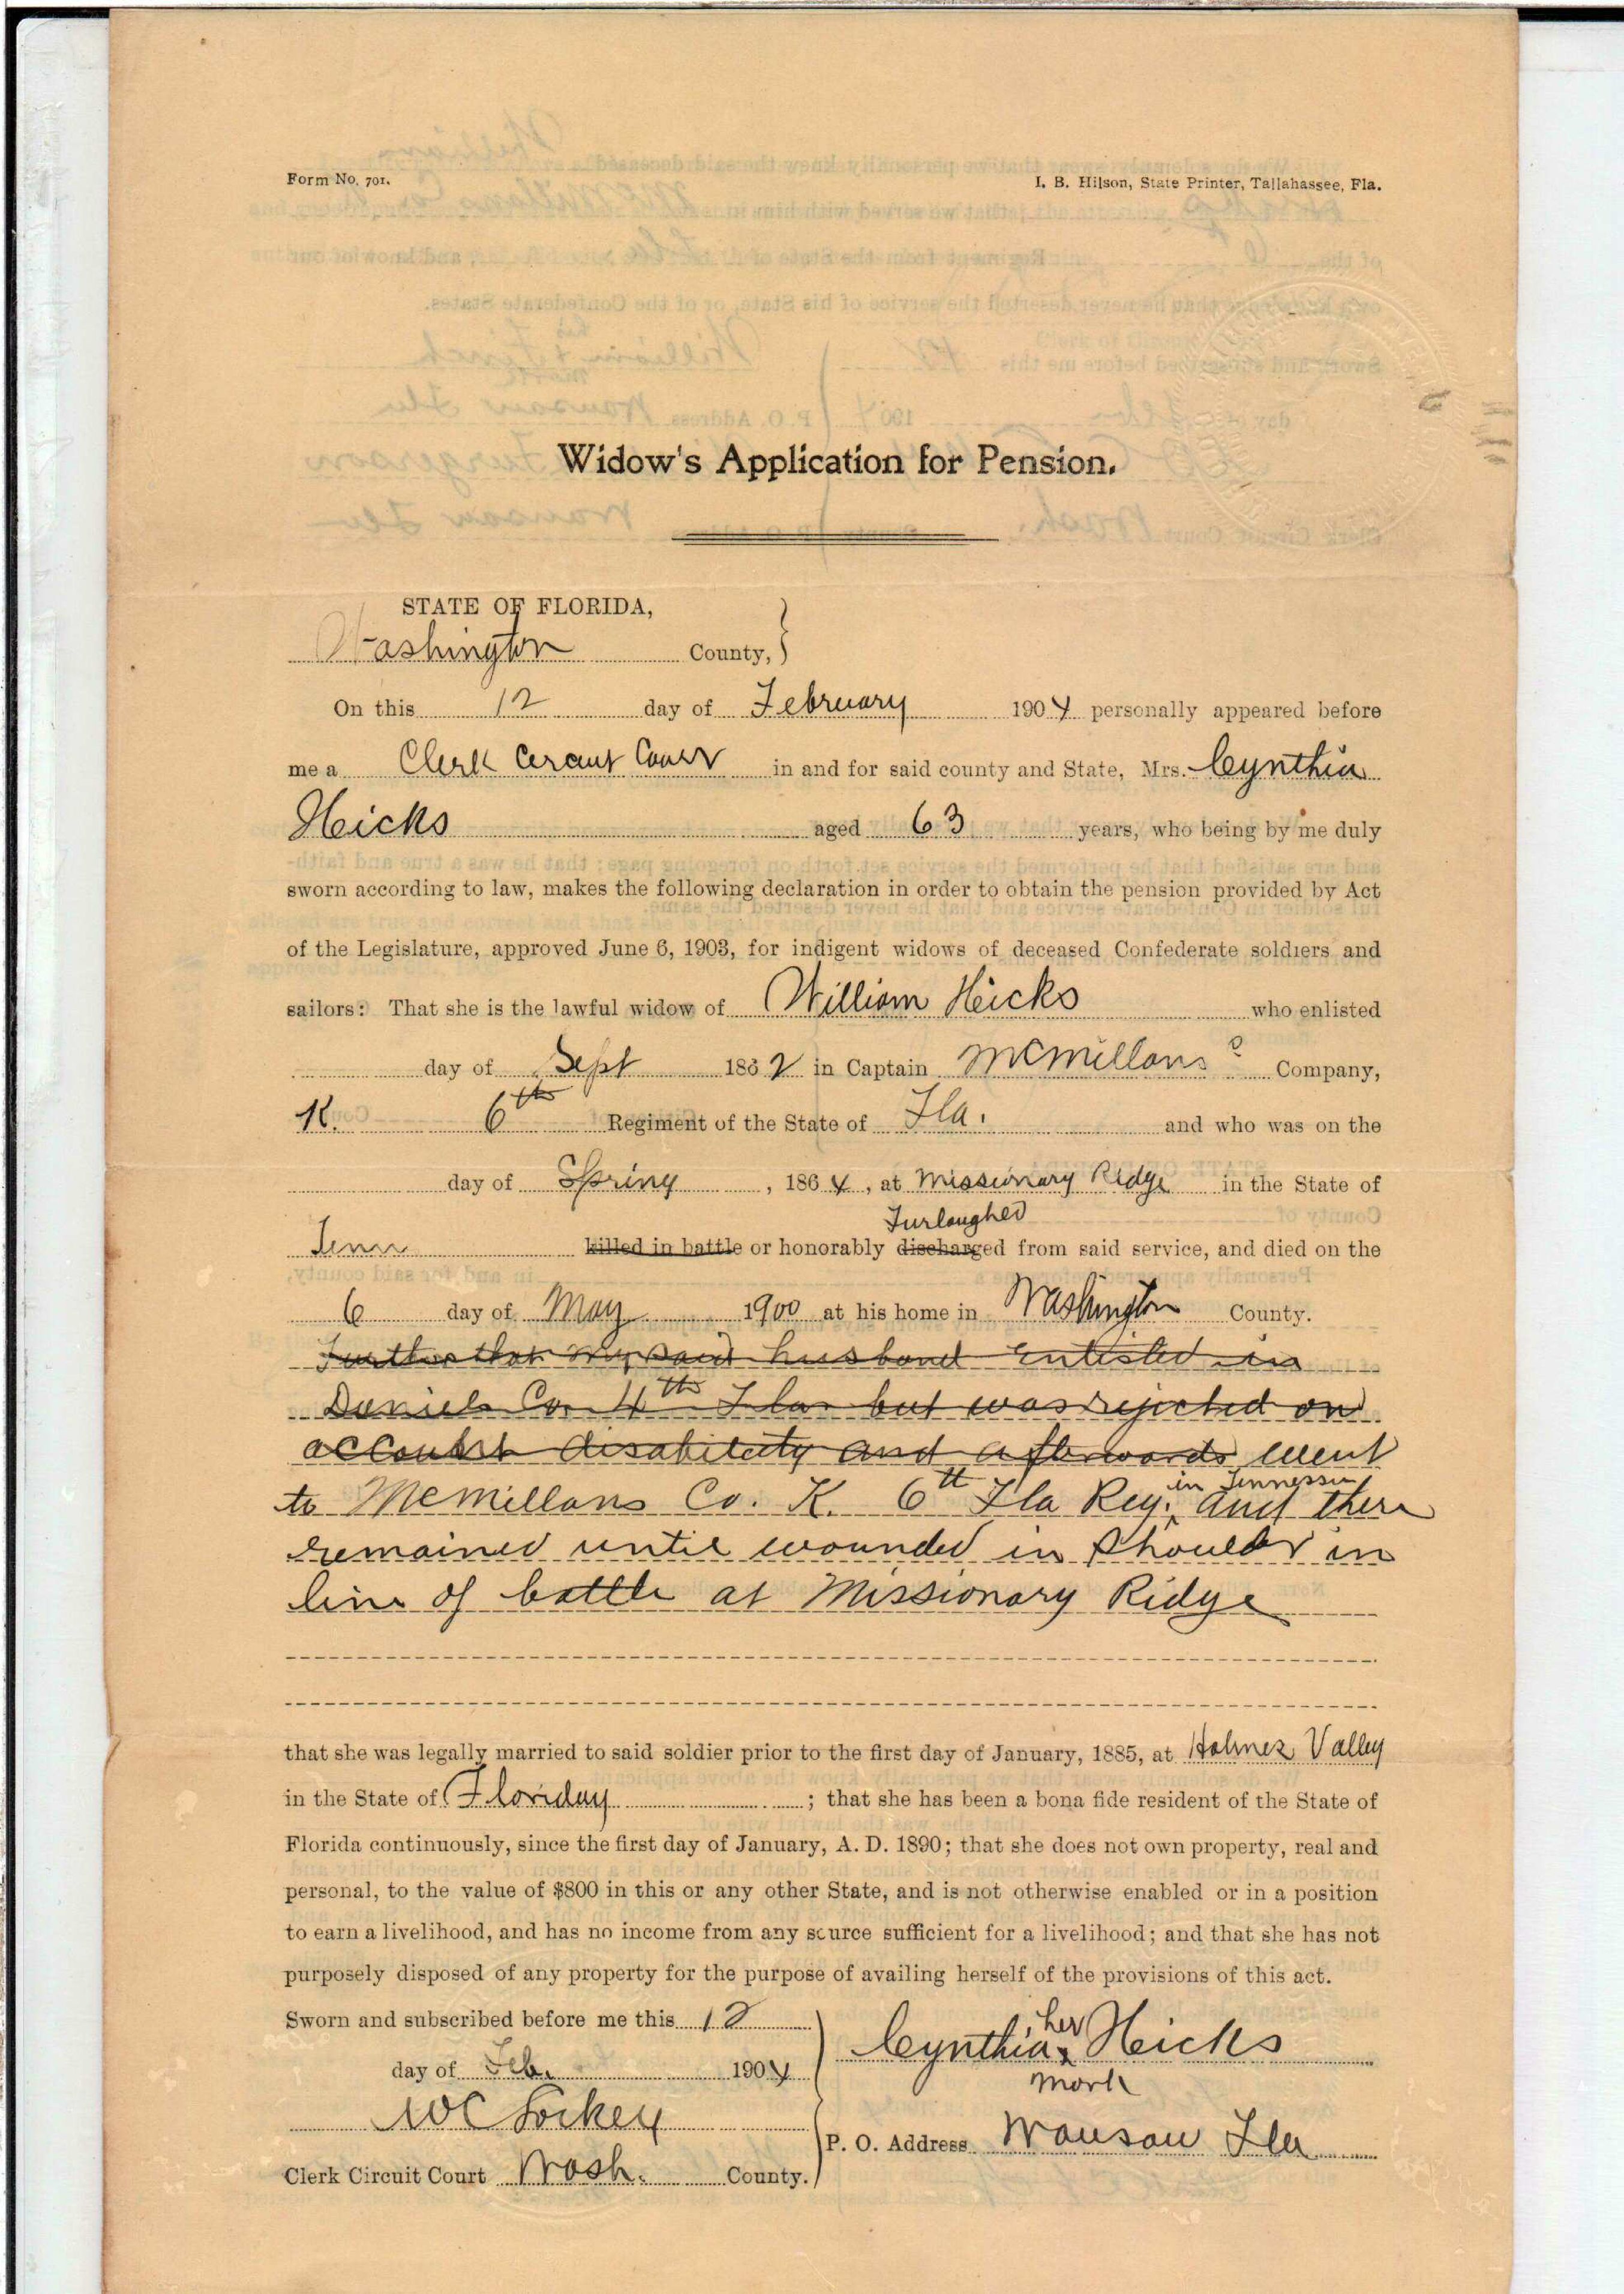 Form No. 701.
I. B. Hilson, State Printer, Tallahassee, Fla.
Widow's Application for Pension.
STATE OF FLORIDA,
Washington County,
On this 12 day of February 1904 personally appeared before
me a Clerk Cercut Court in and for said county and State, Mrs. Cynthia
Hicks aged 63 years, who being by me duly
sworn according to law, makes the following declaration in order to obtain the pension provided by Act
of the Legislature, approved June 6, 1903, for indigent widows of deceased Confederate soldiers and
sailors: That she is the lawful widow of William Hicks who enlisted
day of Sept 1862 in Captain McMillans Company,
K. 6th Regiment of the State of Fla. and who was on the
day of Spring, 1864, at Missionary Ridge in the State of
Furloughed
Tenn killed in battle or honorably discharged from said service, and died on the
6 day of May 1900 at his home in Washington County.
Further that my said husband enlisted in
Daniels Co. 4th Fla. but was rejected on
account disability and afterwards went
in Tennessee
to McMillans Co. K. 6th Fla Reg. and there
remained until wounded in shoulder in
line of battle at Missionary Ridge
that she was legally married to said soldier prior to the first day of January, 1885, at Holmes Valley
in the State of Floriday; that she has been a bona fide resident of the State of
Florida continuously, since the first day of January, A. D. 1890; that she does not own property, real and
personal, to the value of $800 in this or any other State, and is not otherwise enabled or in a position
to earn a livelihood, and has no income from any source sufficient for a livelihood; and that she has not
purposely disposed of any property for the purpose of availing herself of the provisions of this act.
Sworn and subscribed before me this 12
her
Cynthia x Hicks
mark
day of Feb. 1904
WC Lockey
P. O. Address Wausau Fla
Clerk Circuit Court Wash. County.